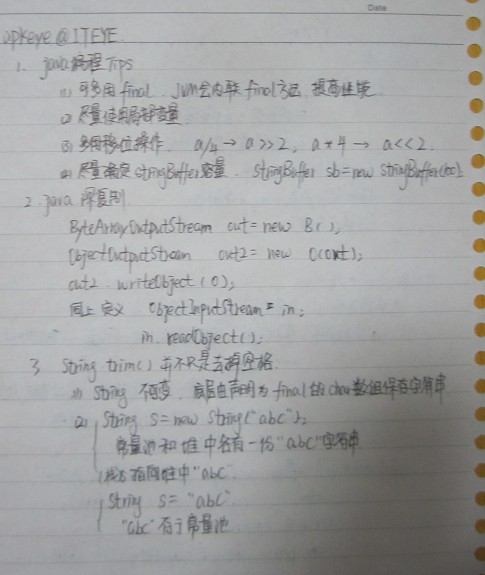 Date
apkeye@ITEYE.
1. java编程Tips
(1) 可多用final. JVM会内联final方法, 提高性能
(2) 尽量使用局部变量
(3) 多用移位操作. a/4 → a>>2, a*4 → a<<2.
(4) 尽量确定StringBuffer容量. StringBuffer sb=new StringBuffer(100);
2. java 深复制
ByteArrayOutputStream out = new B();
ObjectOutputStream out2 = new O(out);
out2.writeObject(O);
同上 定义 ObjectInputStream = in;
in.readObject();
3. String trim()并不只是去掉空格
(1) String 不可变. 底层由声明为final的char数组保存字符串
(2) String s=new String("abc");
常量池和堆中各有一份"abc"字符串
栈s指向堆中"abc"
String s= "abc"
"abc"存于常量池